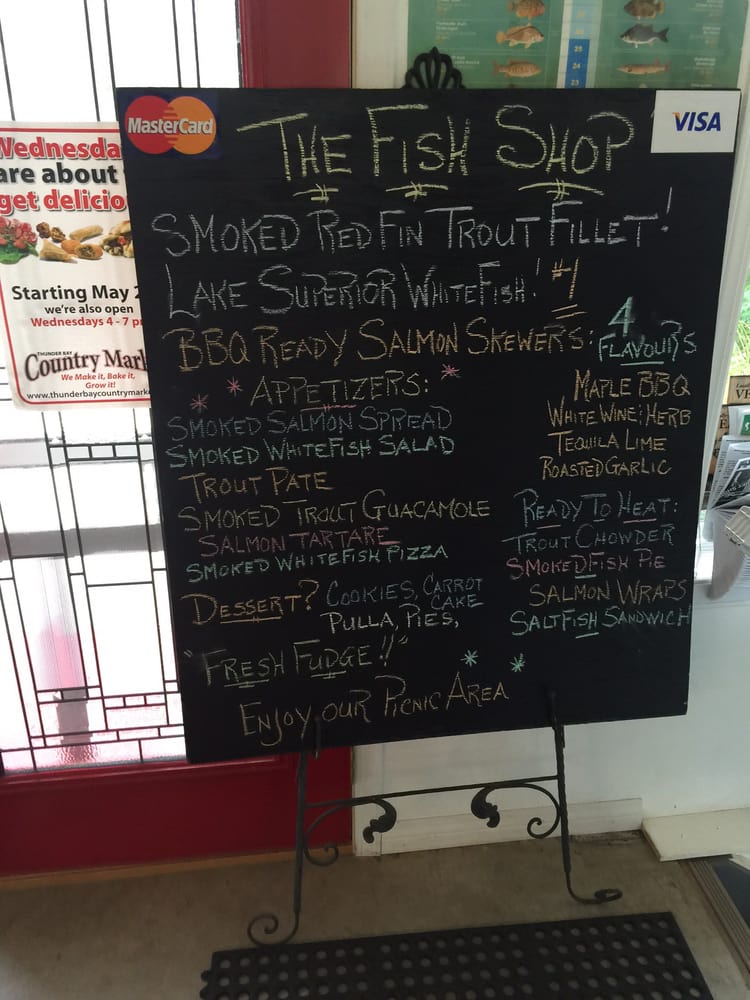 MasterCard
THE FISH SHOP
VISA
SMOKED RED FIN TROUT FILLET!
LAKE SUPERIOR WHITEFISH! #1
BBQ READY SALMON SKEWERS: 4 FLAVOURS
MAPLE BBQ
WHITE WINE: HERB
TEQUILA LIME
ROASTED GARLIC
* * APPETIZERS: *
SMOKED SALMON SPREAD
SMOKED WHITEFISH SALAD
TROUT PATE
SMOKED TROUT GUACAMOLE
SALMON TARTARE
SMOKED WHITEFISH PIZZA
READY TO HEAT:
TROUT CHOWDER
SMOKED FISH PIE
SALMON WRAPS
SALTFISH SANDWICH
DESSERT? COOKIES, CARROT CAKE
PULLA, PIES,
"FRESH FUDGE!!"
* *
ENJOY OUR PICNIC AREA
Wednesda
are about
get delicio
Starting May 2
we're also open
Wednesdays 4 - 7 p
THUNDER BAY
Country Mark
We Make it, Bake it,
Grow it!
www.thunderbaycountrymarke
25
24
23